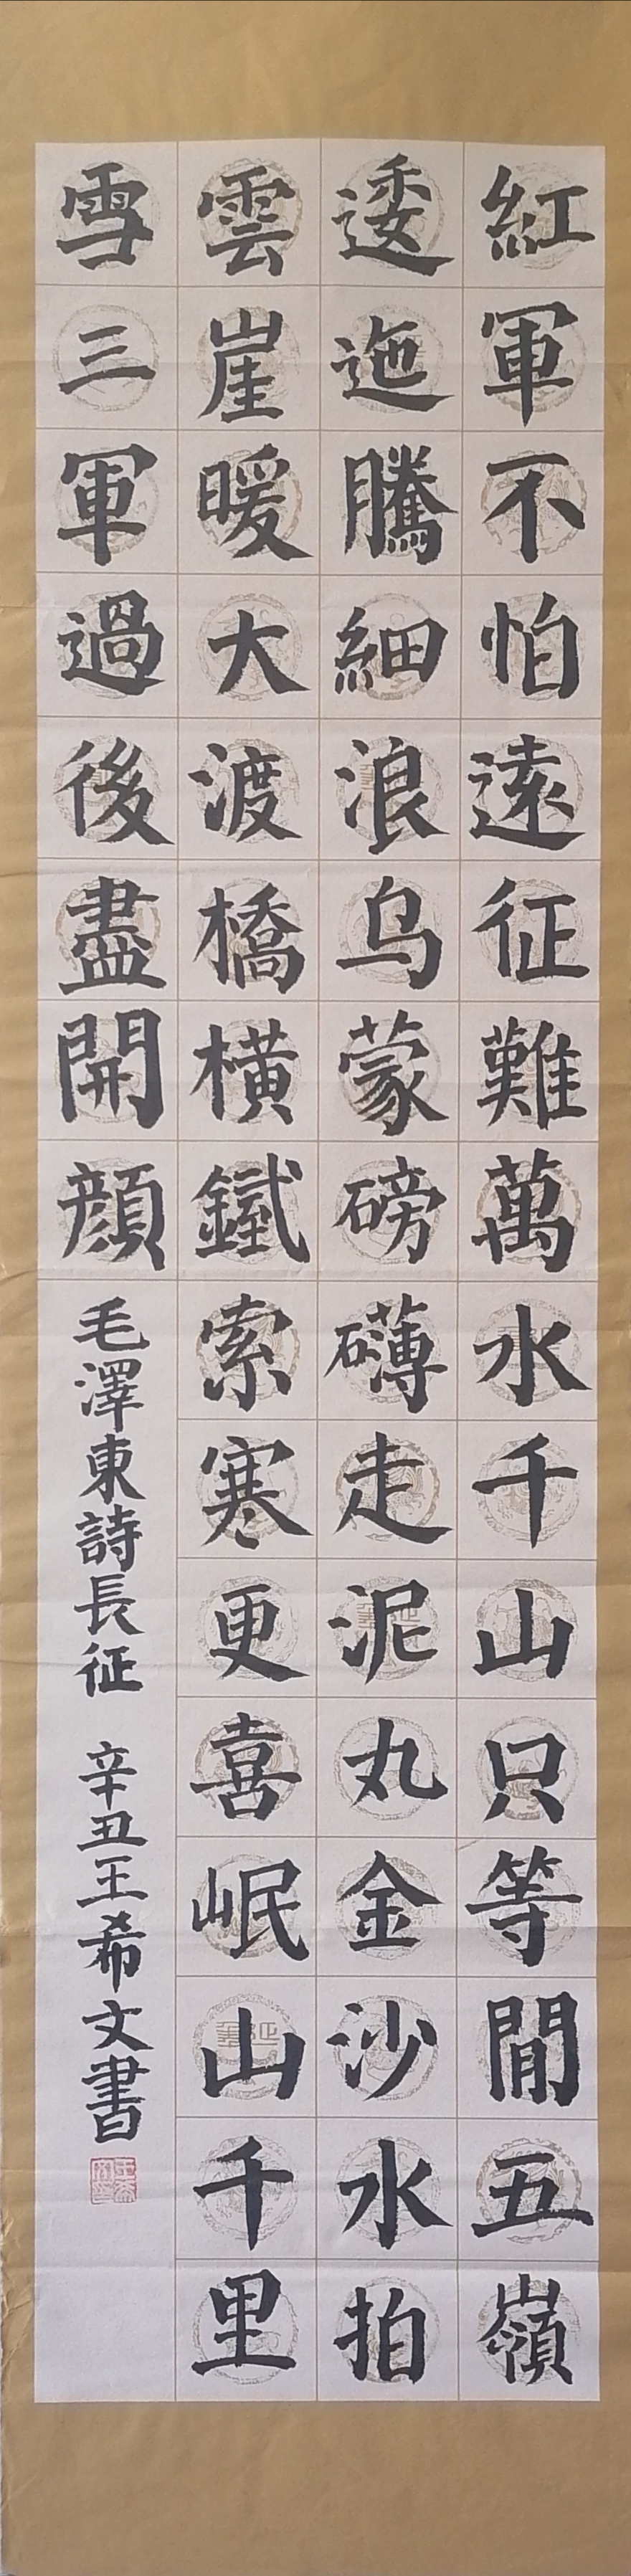 紅軍不怕遠征難萬水千山只等閒五嶺
逶迤騰細浪乌蒙磅礴走泥丸金沙水拍
雲崖暖大渡橋橫鐵索寒更喜岷山千里
雪三軍過後盡開顔
毛澤東詩長征 辛丑王希文書